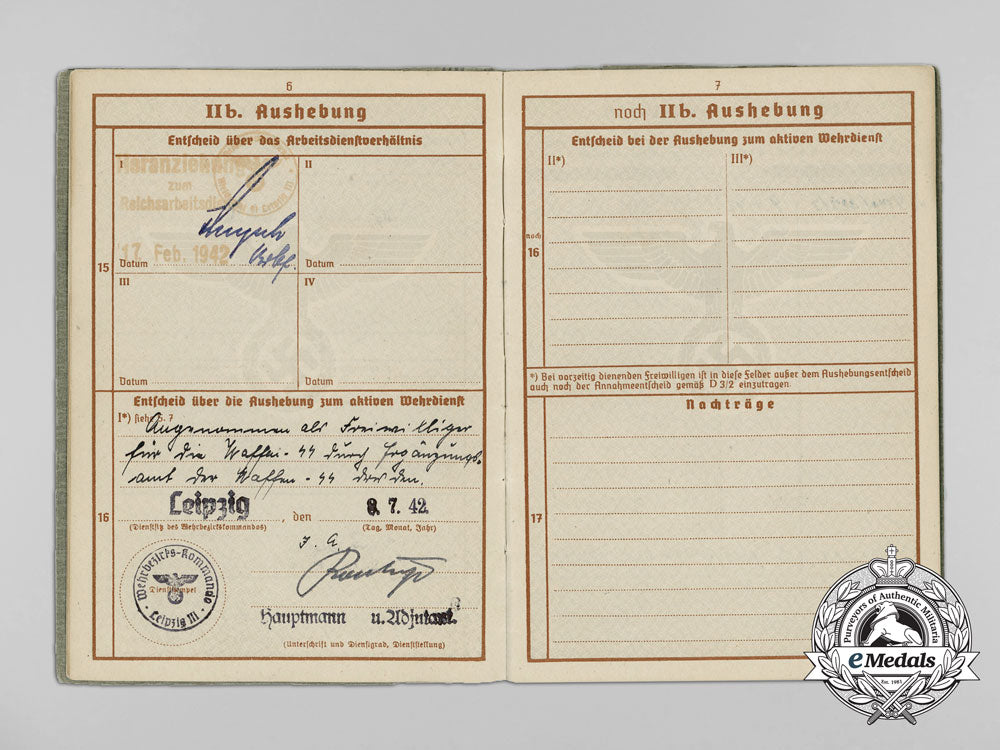 6
II b. Aushebung
Entscheid über das Arbeitsdienstverhältnis
I
II
Heranziehung
zum
Reichsarbeitsdienst
17 Feb. 1942
Datum
Datum
15
III
IV
Datum
Datum
Entscheid über die Aushebung zum aktiven Wehrdienst
I*) siehe S. 7
Angenommen als Freiwilliger
für die Waffen-SS durch Ergänzungs-
amt der Waffen-SS Dresden.
16
Leipzig, den 8. 7. 42.
(Dienstsitz des Wehrbezirkskommandos)
(Tag, Monat, Jahr)
J. A.
Wehrbezirks-Kommando
Dienststempel
Leipzig III
Hauptmann u. Adjutant.
(Unterschrift und Dienstgrad, Dienststellung)
7
noch II b. Aushebung
Entscheid bei der Aushebung zum aktiven Wehrdienst
II*)
III*)
noch
16
*) Bei vorzeitig dienenden Freiwilligen ist in diese Felder außer dem Aushebungsentscheid
auch noch der Annahmeentscheid gemäß D 3/2 einzutragen.
Nachträge
17
Purveyors of Authentic Militaria
eMedals
Est. 1981